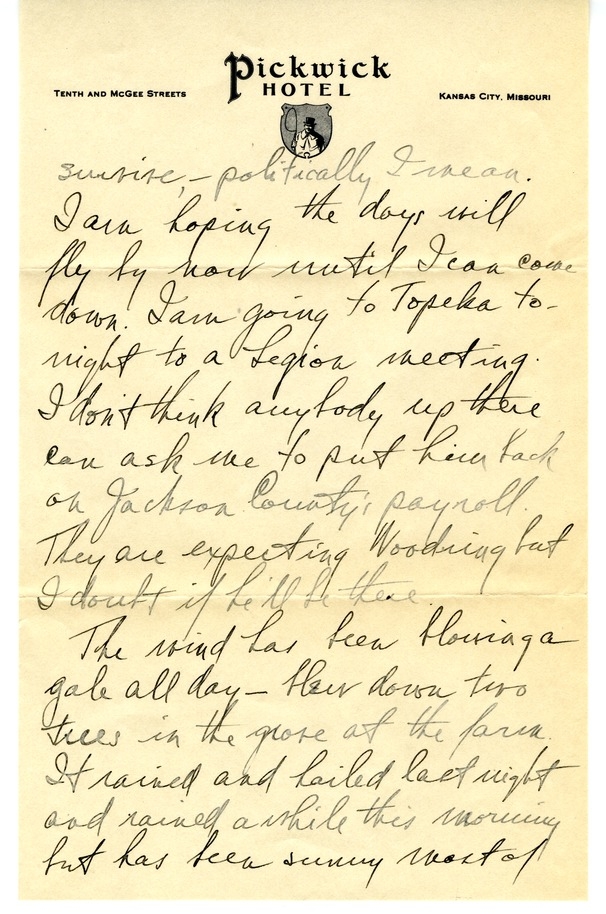 Pickwick
HOTEL
TENTH AND MCGEE STREETS
KANSAS CITY, MISSOURI
survive, – politically I mean.
I am hoping the days will
fly by now until I can come
down. I am going to Topeka to-
night to a Legion meeting.
I don't think anybody up there
can ask me to put him back
on Jackson County's payroll.
They are expecting Woodring but
I doubt if he'll be there.
The wind has been blowing a
gale all day – blew down two
trees in the grove at the farm.
It rained and hailed last night
and rained a while this morning
but has been sunny most of